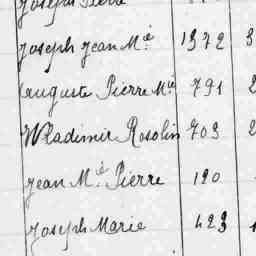 Joseph Pierre
Joseph Jean M.ie 1372 3
Auguste Pierre M.ie 791 2
Wladimir Rosolin 703 2
Jean M.ie Pierre 120
Joseph Marie 423